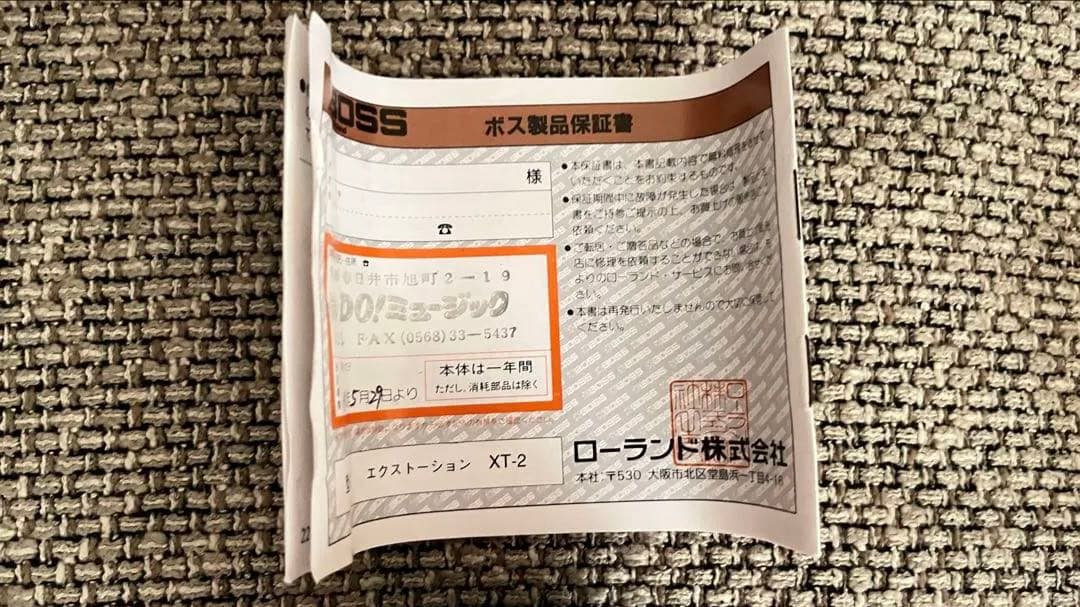 BOSS
ボス製品保証書
様
☎
☎
春日井市旭町2-19
DO!ミュージック
FAX(0568)33-5437
5月29日より
本体は一年間
ただし、消耗部品は除く
エクストーション XT-2
●本保証書は、本書記載内容で無料修理を
いただくことをお約束するものです。
●保証期間中に故障が発生した場合は、
書をご持参ご提示の上、お買上げの
依頼ください。
●ご転居・ご贈答品などの場合で、
店に修理を依頼することができない場合は、
よりのローランド・サービスに
さい。
●本書は再発行いたしませんので大切に保管して
ください。
ローランド株式会社
本社:〒530 大阪市北区堂島浜一丁目4-16
22